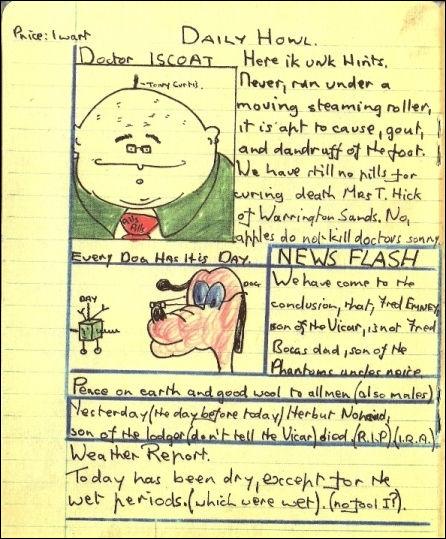 Price: 1 wart
DAILY HOWL.
Doctor ISCOAT
Tony Curtis.
Pills
Pills
Here ik unk Hints.
Never, run under a
moving steaming roller,
it is apt to cause, gout,
and dandruff of the foot.
We have still no pills for
curing death Mrs T. Hick
of Warrington Sands. No,
apples do not kill doctors sonny
EVERY DOG HAS IT IS DAY.
DAY
DOG
NEWS FLASH
We have come to the
conclusion, that, Fred EMNEY,
son of the Vicar, is not Fred
Bocas dad, son of the
Phantoms uncles neice.
Peace on earth and good wool to all men (also males)
Yesterday (the day before today) Herbut
son of the lodger (don't tell the Vicar) died. (R.I.P) (I.R.A.)
Weather Report.
Today has been dry, except for the
wet periods. (which were wet). (no fool I?).